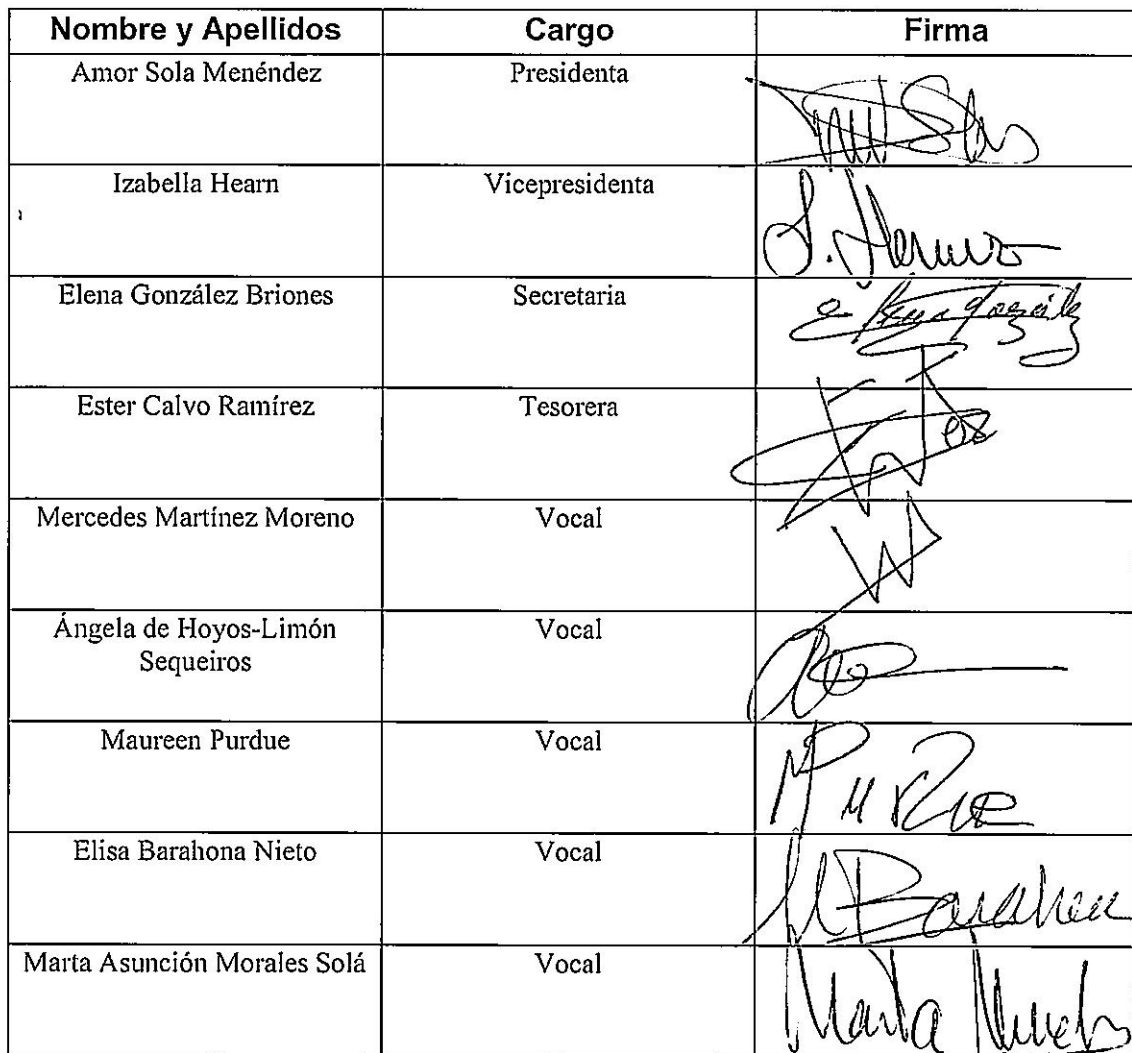 Nombre y Apellidos Cargo Firma
Amor Sola Menéndez Presidenta
Izabella Hearn Vicepresidenta
Elena González Briones Secretaria
Ester Calvo Ramírez Tesorera
Mercedes Martínez Moreno Vocal
Ángela de Hoyos-Limón Vocal
Sequeiros
Maureen Purdue Vocal
Elisa Barahona Nieto Vocal
Marta Asunción Morales Solá Vocal
Marta